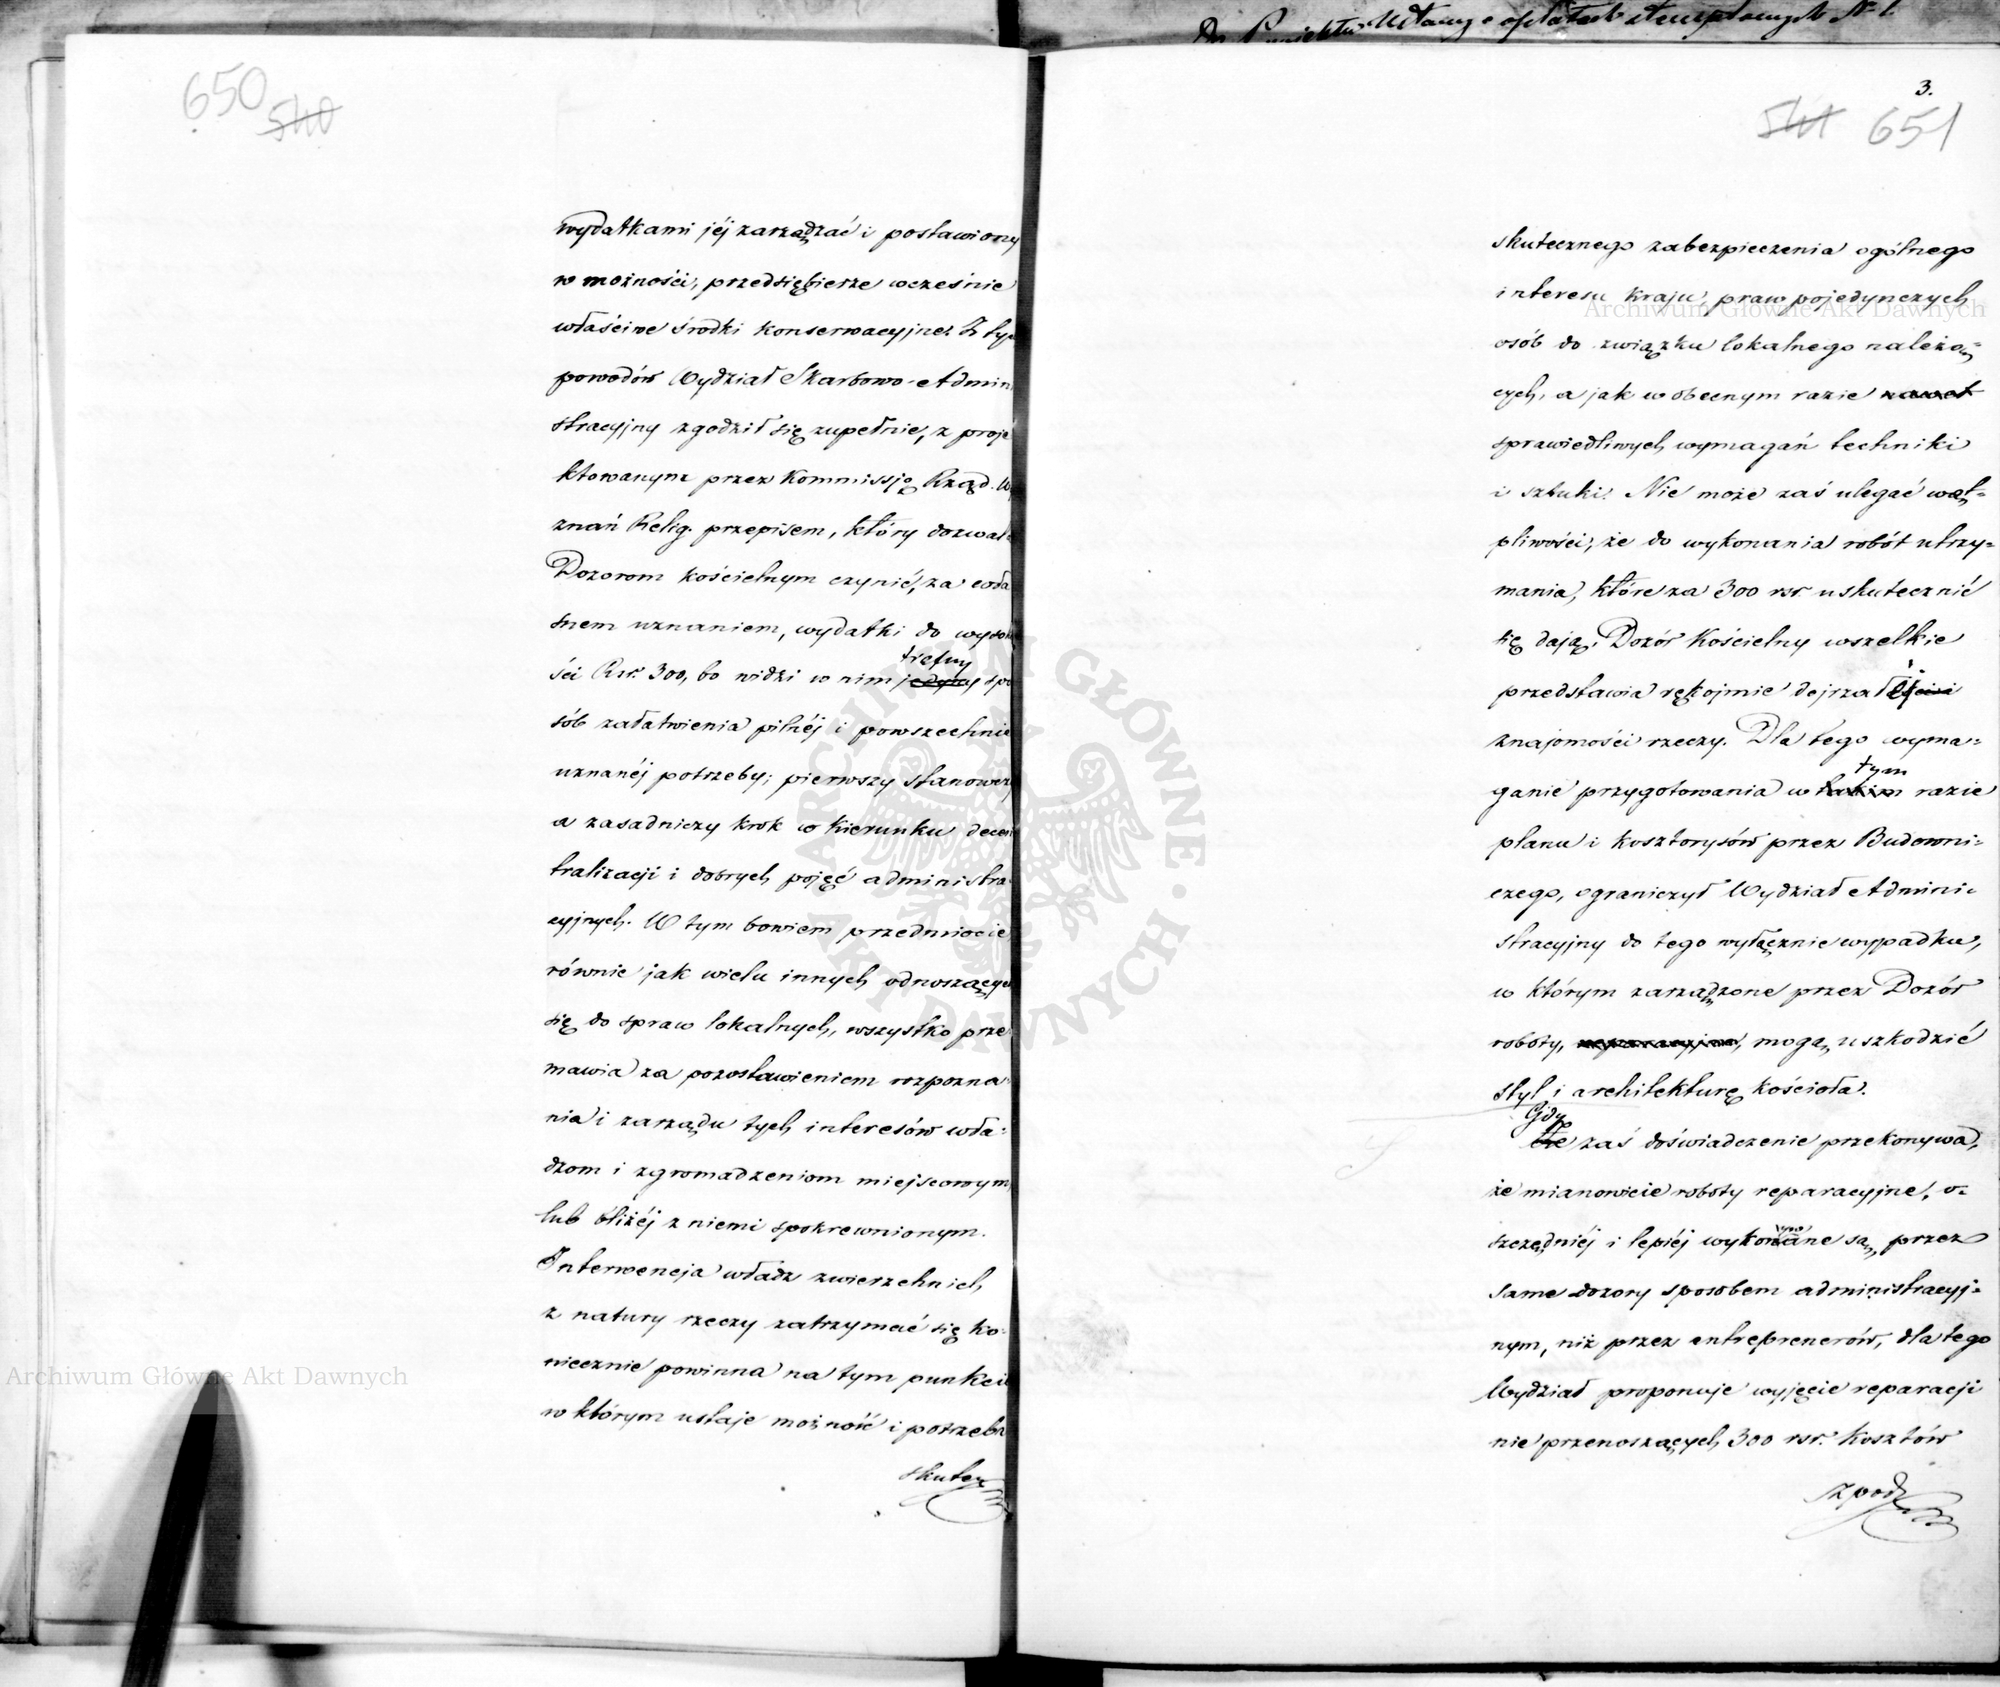 Ustawy o opłatach stemplowych N 1.
650
540
wydatkami jéj zarządzać i postawiony
w możności, przedsiębierze wcześnie
właściwe środki konserwacyjne. Z ty
powodów Wydział Skarbowo-Admin
stracyjny zgodził się zupełnie, z proje
ktowanym przez Kommissję Rząd. W
znań Relig. przepisem, który dozwal
Dozorom kościelnym czynić, za wła
snem uznaniem, wydatki do wysok
ści Rsr. 300, bo widzi w nim jedyny spo
trefny
sób załatwienia pilnéj i powszechnie
uznanéj potrzeby; pierwszy stanowczy
a zasadniczy krok w kierunku decen
tralizacji i dobrych pojęć administra
cyjnych. W tym bowiem przedmiocie
równie jak wielu innych odnoszących
się do spraw lokalnych, wszystko prze
mawia za pozostawieniem rozpozna-
nia i zarządu tych interesów wła-
dzom i zgromadzeniom miejscowym,
lub bliżéj z niemi spokrewnionym.
Interwencja władz zwierzchnich
z natury rzeczy zatrzymać się ko-
niecznie powinna na tym punkcie
w którym ustaje możność i potrzeba
skutecz
3.
541 651
skutecznego zabezpieczenia ogólnego
interesu kraju, praw pojedynczych
osób do związku lokalnego należą-
cych, a jak w obecnym razie nawet
sprawiedliwych wymagań techniki
i sztuki. Nie może zaś ulegać wąt-
pliwości, że do wykonania robót utrzy-
mania, które za 300 rsr. uskutecznić
się dają, Dozór Kościelny wszelkie
przedstawia rękojmie dojrzałéj
znajomości rzeczy. Dla tego wyma-
ganie przygotowania w takim razie
tym
planu i kosztorysów przez Budowni-
czego, ograniczył Wydział Admini-
stracyjny do tego wyłącznie wypadku,
w którym zarządzone przez Dozór
roboty, reparacyjne, mogą uszkodzić
styl i architekturę kościoła.
Gdy
zaś doświadczenie przekonywa,
że mianowicie roboty reparacyjne, o-
szczędniéj i lepiéj wykonane są, przez
same dozory sposobem administracyj-
nym, niż przez entreprenerów, dla tego
Wydział proponuje wyjęcie reparacji
nie przenoszących 300 rsr. kosztów
z pod
Archiwum Główne Akt Dawnych
Archiwum Główne Akt Dawnych
ARCHIWUM GŁÓWNE AKT DAWNYCH